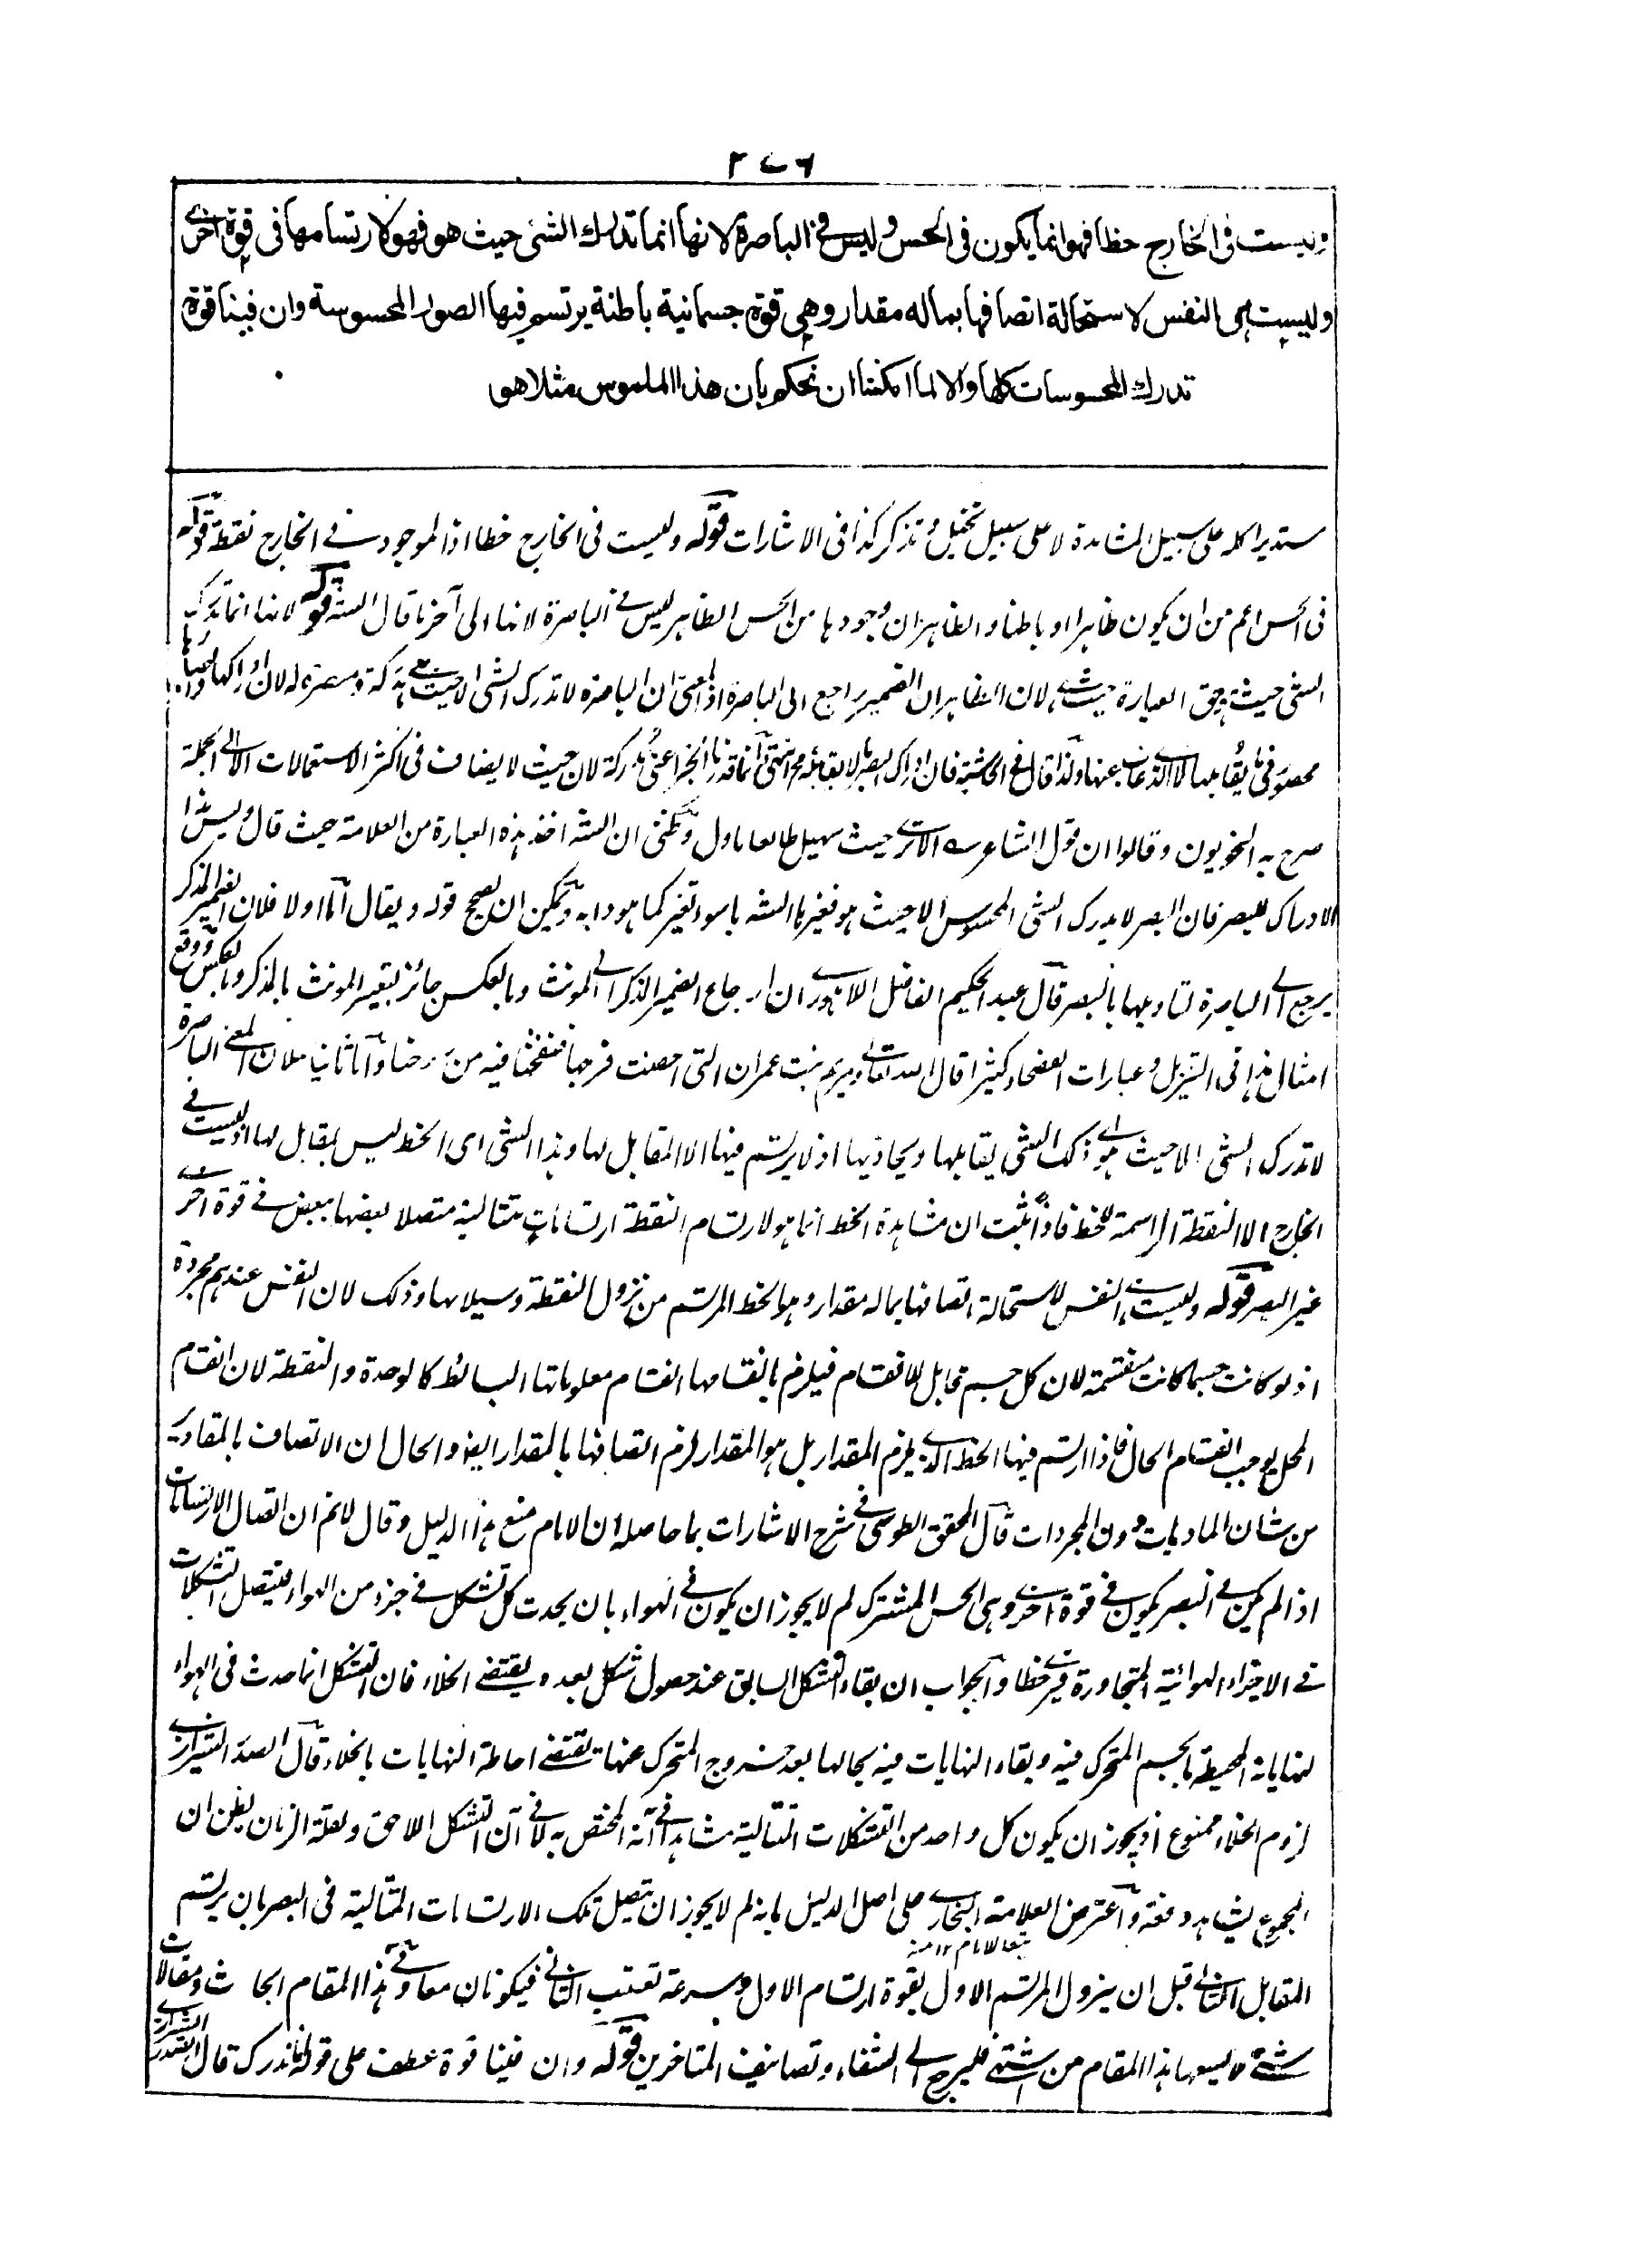 ٢٧٦
وليست فى الخارج خطا فهو انما يكون فى الحس وليس فى الباصرة لانها انما تدرك الشئ حيث هو فهو لارتسامها فى قوة اخرى
وليست هى النفس لاستحالة اتصافها بماله مقدار وهى قوة جسمانية باطنة يرتسم فيها الصور المحسوسة وان فينا قوة
تدرك المحسوسات كلها والا لما امكننا ان نحكم بان هذا الملموس مثلا هو
مستديرا كله على سبيل المشاهدة لا على سبيل تخيل وتذكر كذا فى الاشارات قوله وليست فى الخارج خطا اذ الموجود فى الخارج نقطة قوله
فى الحس اعم من ان يكون ظاهرا او باطنا والظاهر ان وجودها من الحس الظاهر ليس فى الباصرة لانها الى آخر ما قال الشه قوله لانها انما تدرك
الشئ حيث هو حق العبارة حيث هى لان الظاهر ان الضمير راجع الى الباصرة اذ المعنى ان الباصرة لا تدرك الشئ الا حيث هى مدركة ومبصرة له لان ادراكها
يقابلها لا الذى غاب عنها ولذا قال فى الحاشية فان ادراك البصر لا يقابله لان حيث لا يضاف فى اكثر الاستعمالات الا الى الجملة
صرح به النحويون وقالوا ان قول الشاعر ع الا ترى حيث سهيل طالعا ماول وظنى ان الشه اخذ هذه العبارة من العلامة حيث قال وليس هذا
الادراك للبصر فان البصر لا يدرك الشئ المحسوس الا حيث هو فغيرها الشه باسوء تغير كما هو دابه ويمكن ان يصح قوله ويقال اما اولا فلان الضمير المذكر
يرجع الى الباصرة لتاويلها بالبصر قال عبد الحكيم الفاضل اللاهورى ان ارجاع الضمير المذكر الى المونث وبالعكس جائز بتعبير المونث بالمذكر وبالعكس ووقع
امثال هذا فى التنزيل وعبارات الفصحاء كثيرا قال الله تعالى ومريم بنت عمران التى احصنت فرجها فنفخنا فيه من روحنا واما ثانيا فلان المعنى الباصرة
لا تدرك الشئ الا حيث هو اى ذلك الشئ يقابلها ويحاذيها اذ لا يرتسم فيها الا المقابل لها وهذا الشئ اى الخط ليس بمقابل لها اذ ليست فى
الخارج الا النقطة الراسمة للخط فاذا ثبت ان مشاهدة الخط انما هو لارتسام النقطة ارتسامات متتالية متصلا بعضها ببعض فى قوة اخرى
غير البصر قوله وليست هى النفس لاستحالة اتصافها بماله مقدار وهو الخط المرتسم من نزول النقطة وسيلانها وذلك لان النفس عندهم مجردة
اذ لو كانت جسما كانت منقسمة لان كل جسم قابل للانقسام فيلزم بانقسامها انقسام معلوماتها البسائط كالوحدة والنقطة لان انقسام
المحل يوجب انقسام الحال فاذا ارتسم فيها الخط الذى يلزم المقدار بل هو المقدار لزم اتصافها بالمقدار ايضا والحال ان الاتصاف بالمقادير
من شان الماديات دون المجردات قال المحقق الطوسى فى شرح الاشارات بما حاصله ان الامام منع هذا الدليل وقال لا نم ان اتصال الارتسامات
اذا لم يكن فى البصر يكون فى قوة اخرى وهى الحس المشترك لم لا يجوز ان يكون فى الهواء بان يحدث كل تشكل فى جزء من الهواء فيتصل التشكلات
فى الاجزاء الهوائية المتجاورة فيرى خطا والجواب ان بقاء التشكل السابق عند حصول تشكل بعده يقتضى الخلاء فان التشكل انما حدث فى الهواء
لنهاياته المحيطة بالجسم المتحرك فيه وبقاء النهايات فيه بحالها بعد خروج المتحرك عنها يقتضى احاطة النهايات بالخلاء قال الصدر الشيرازى
لزوم الخلاء ممنوع اذ يجوز ان يكون كل واحد من التشكلات المتتالية مشاهدا فى آنه المختص به لا فى آن التشكل اللاحق ولقلة الزمان يظن ان
المجموع يشاهد دفعة واعترض العلامة البخارى على اصل الدليل بانه لم لا يجوز ان يتصل تلك الارتسامات المتتالية فى البصر بان يرتسم
تبعا للامام ١٢ منه
المقابل الثانى قبل ان يزول المرتسم الاول بقوة ارتسام الاول وسرعة تعقيب الثانى فيكونان معا وفى هذا المقام ابحاث ومقالات
شتى لا يسعها هذا المقام من اشتهى فليرجع الى الشفاء وتصانيف المتاخرين قوله وان فينا قوة عطف على قوله انا ندرك قال الصدر الشيرازى